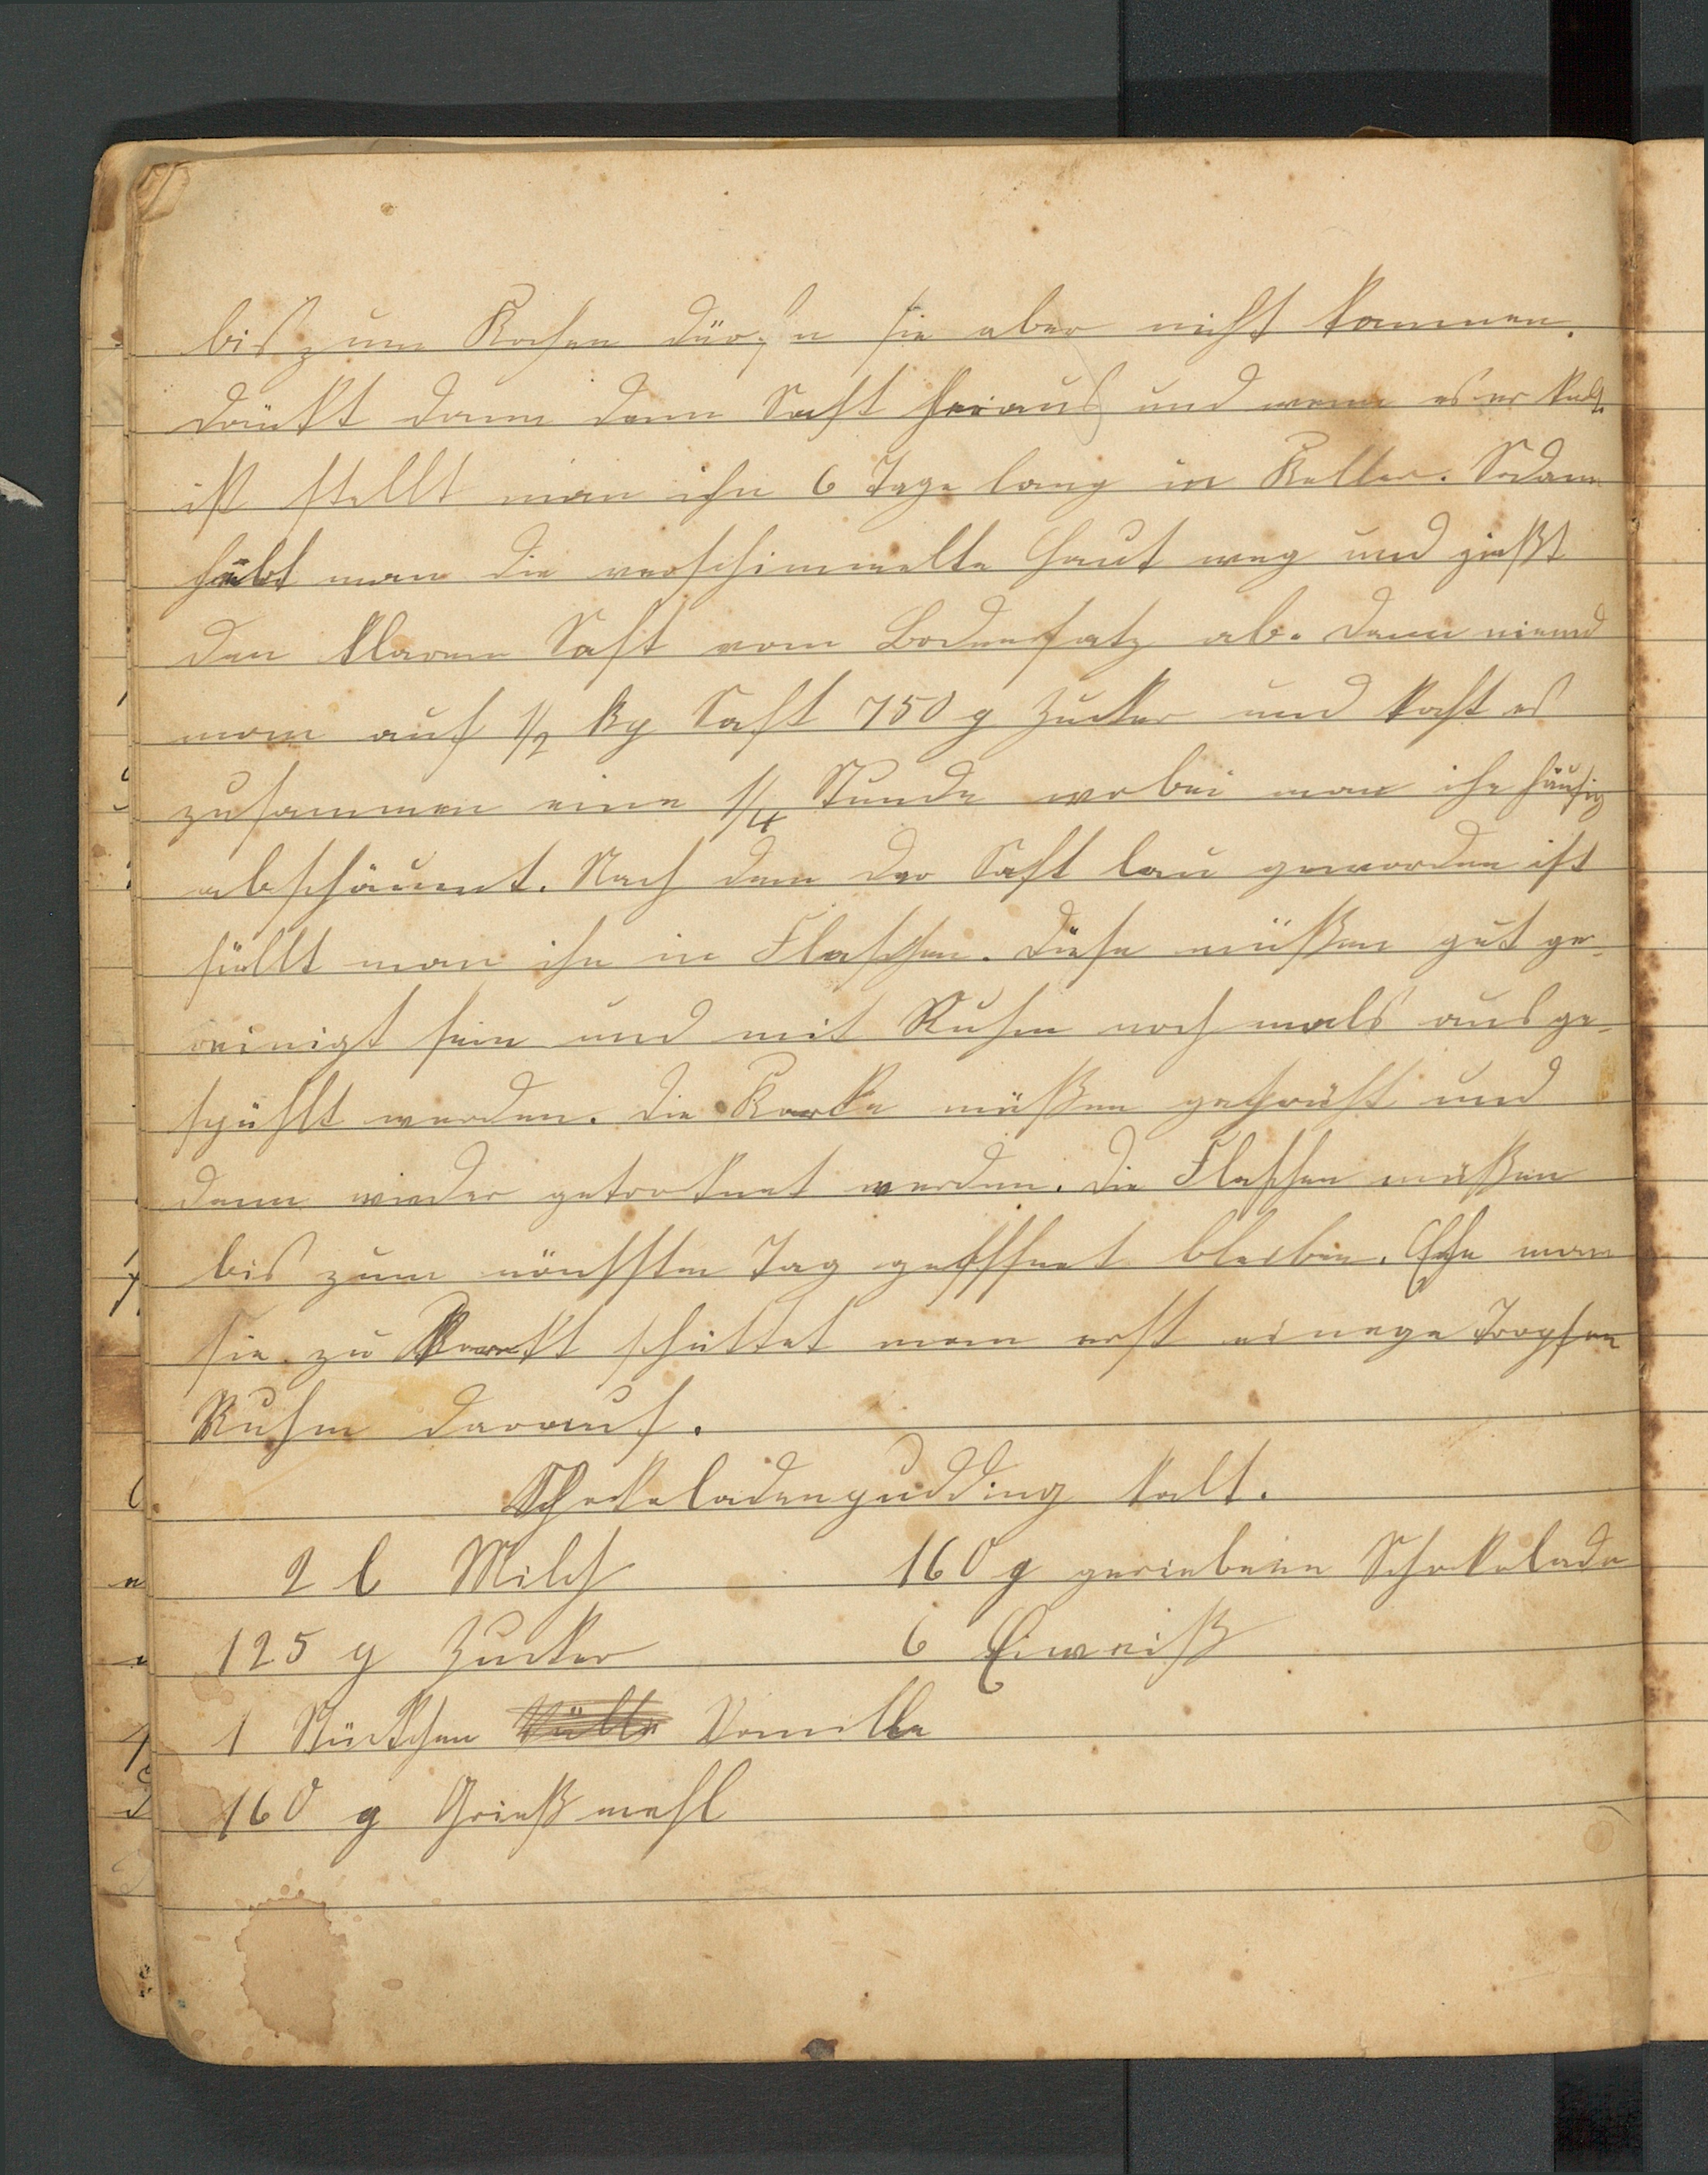 bis zum Kochen dürfen sie aber nicht kommen.
drükt dann denn Saft heraus und wenn es er kalt
ist stellt man ihn 6 Tage lang in Keller. Sodann
hebt man die verschimmelte Haut weg und gießt
den klaren Saft vom Bodensatz ab. Dann niemd
man auf 1/2 kg Saft 750 g Zucker und kocht es
zusammen eine 1/4 Stunde wobei man ihn häufig
abschäumt. Nach dem der Saft lau geworden ist
füllt man ihn in Flaschen. Diese müßen gut ge-
reinigt sein und mit Ruhm noch mals ausge-
spühlt werden. Die Korke müßen gebrüht und
dann wieder getroknet werden. Die Flaschen müßen
bis zum nächsten Tag geöffnet bleiben. Ehe man
sie zu korkt schüttet man erst einege Tropfen
Ruhm darauf.
Schokoladenpudding kalt.
2 l Milch 160 g geriebene Schokolade
125 g Zucker 6 Eiweiß
1 Stückchen Vanille
160 g Grießmehl